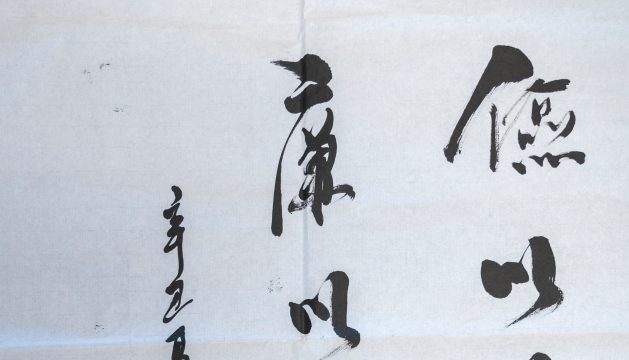 俭以
廉以
辛丑